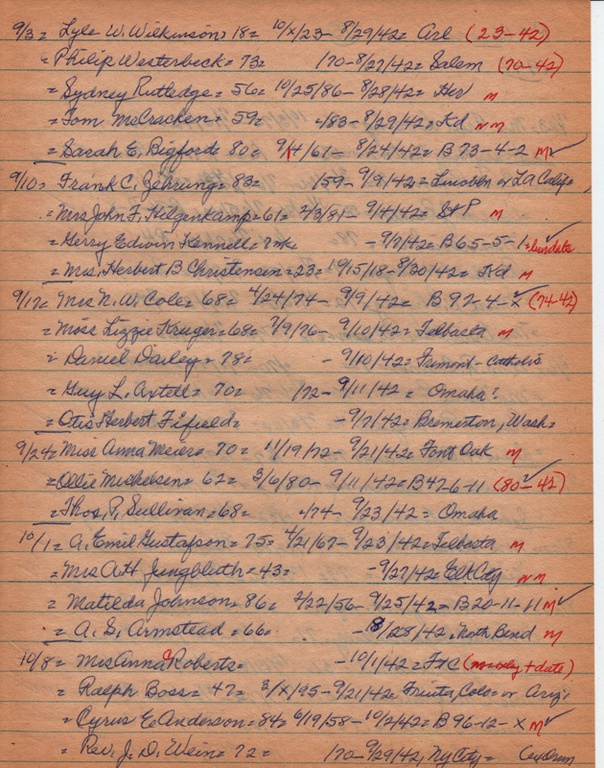 9/3= Lyle W. Wilkinson= 18= 10/x/23- 8/29/42= Arl (23-42)
= Philip Westerbeck= 73= /70-8/27/42= Salem (70-42)
= Sydney Rutledge= 56= 10/25/86- 8/28/42= Her M
= Tom McCracken= 59= /83- 8/29/42= Kd NM
= Sarah E. Bigford= 80= 9/4/61- 8/24/42= B 73-4-2 M✓
9/10= Frank C. Zehrung= 83= /59- 9/9/42= Lincoln or LA Calif=
= Mrs John F. Hilgenkamp= 61= 2/3/81- 9/4/42= St P M
= Gerry Edwin Kennell= - 9/7/42= B65-5-1=
= Mrs. Herbert B Christensen= 23= 10/15/18- 8/30/42= Kd M
9/17= Mrs N. W. Cole= 68= 4/24/74- 9/9/42= B 92-4-x (74-42)
= Miss Lizzie Kruger= 68= 7/9/76- 9/10/42= Telbasta M
= Daniel Dailey= 78= - 9/10/42= Fremont-Catholic
= Guy L. Axtell= 70= /72- 9/11/42= Omaha?
= Otis Herbert Fifield= - 9/7/42= Bremerton, Wash=
9/24= Miss Anna Meier= 70= 11/19/72- 9/21/42= Font Oak M
= Ollie Michelsen= 62= 3/6/80- 9/11/42= B426-11 (80-42)
= Thos. P. Sullivan= 68= /74- 9/23/42= Omaha
10/1= A. Emil Gustafson= 75= 4/21/67- 9/23/42= Telbasta M
= Mrs A H Jungbluth= 43= - 9/27/42= Elk City NM
= Matilda Johnson= 86= 2/22/56- 9/25/42= B20-11-11 M✓
= A. S. Armstead= 66= - /28/42, North Bend M
10/8= Mrs Anna Roberts= -10/1/42= Ft C
= Ralph Boss= 47= 3/x/95- 9/21/42= Fruita, Colo= or Ariz=
= Cyrus E Anderson= 84= 6/19/58- 10/2/42= B 96-12-x M✓
= Rev. J. D. Wein= 72= /70- 9/29/42, NyCity=